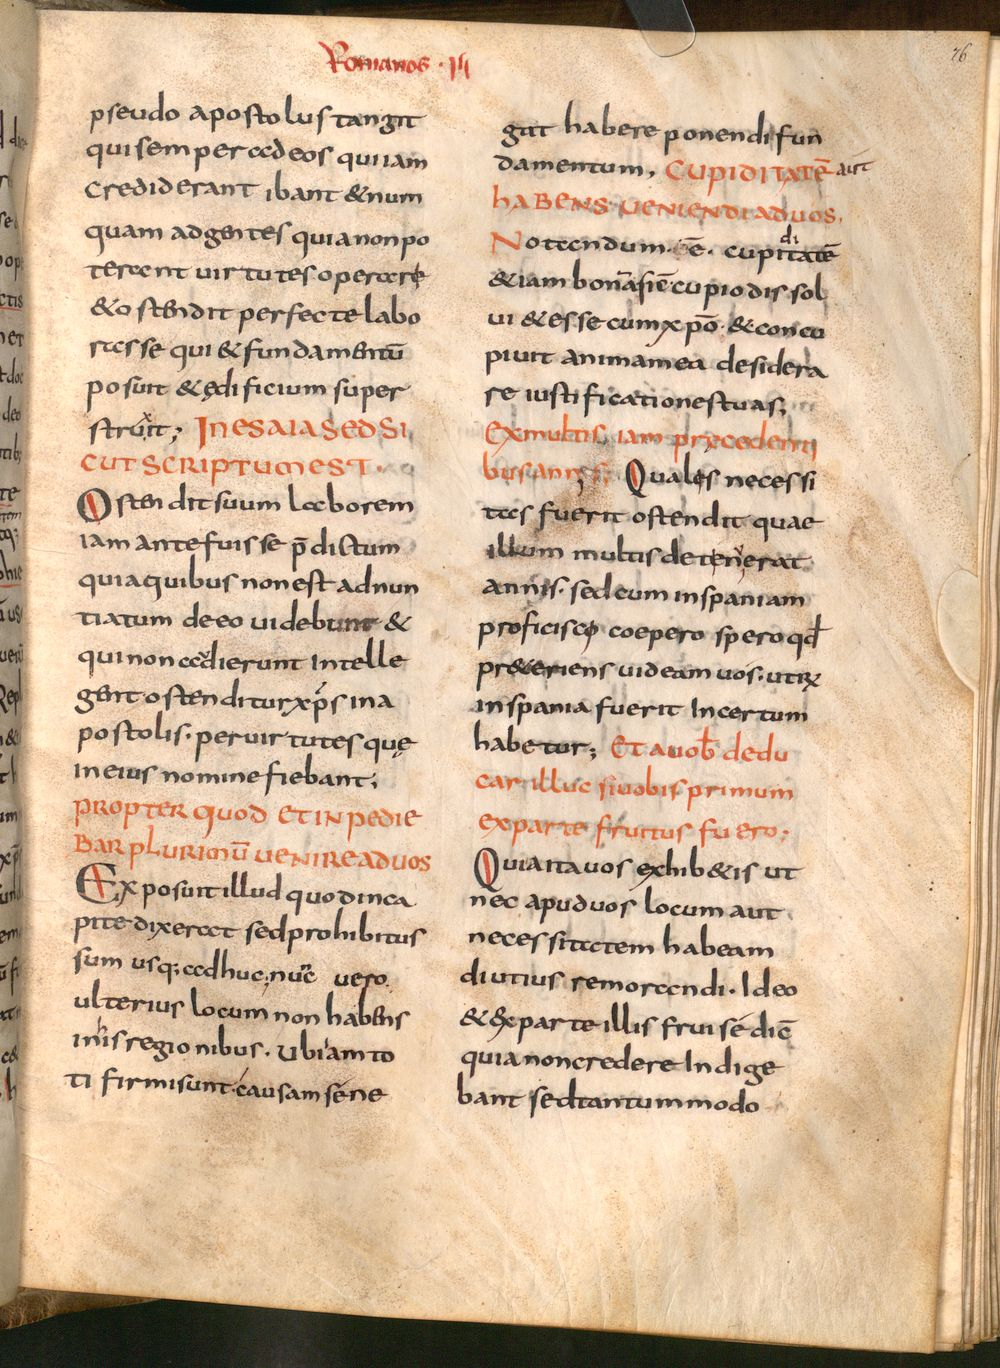 Romanos · III
76
pseudo apostolus tangit
qui semper ad eos qui iam
crediderant ibant & num
quam ad gentes quia non po
terant uirtutes operare
& ostendit perfecte labo
rasse qui & fundamentū
posuit & ędificium super
struxit; In esaia sed si
cut scriptum est ·
Ostendit suum laborem
iam ante fuisse p̄dictum
quia quibus non est adnun
tiatum de eo uidebunt &
qui non audierunt intelle
gent· ostenditur xp̄s in a
postolis· per uirtutes quę
in eius nomine fiebant;
propter quod et inpedie
bar plurimū uenire ad uos
Exposuit illud quod in ca
pite dixerat sed prohibitus
sum usq; adhuc; nūc uero
ulterius locum non habens
in his regionibus · Ubi iam to
ti firmi sunt· causam se ne
gat habere ponendi fun
damentum, Cupiditatē aut
habens ueniendi ad uos,
Notandum· ē· cupiditatē
& iam bonā· sic̄ cupio dissol
ui & esse cum xp̄o· & concu
piuit anima mea desidera
re iustificationes tuas;
Ex multis iam pręcedenti
bus annis; Quales necessi
tas fuerit ostendit quae
illum multis detenuerat
annis· sed cum in spaniam
proficisci coepero spero qđ
pr&eriens uideam uos· utrū
in spania fuerit Incertum
habetur; Et a uob̄ dedu
car illuc si uobis primum
ex parte fruitus fuero;
Quia ita uos exhib&is ut
nec apud uos locum aut
necessitatem habeam
diutius remorandi · Ideo
& ex parte illis frui se dic̄
quia non credere Indige
bant sed tantummodo